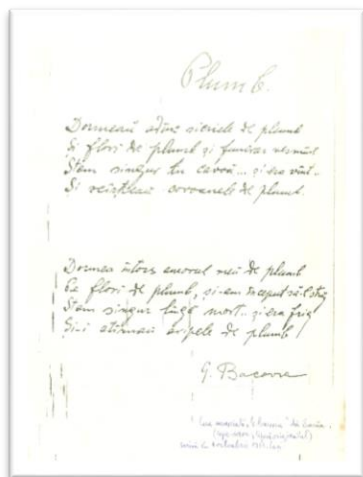 Plumb.
Dormeau adânc sicriele de plumb
Și flori de plumb și funerar vesmînt
Stam singur în cavou... și era vînt..
Si scîrțîiau coroanele de plumb.
Dormea întors amorul meu de plumb
Pe flori de plumb, și-am început să-l strig
Stam singur lângă mort.. și era frig
Și-i atîrnau aripele de plumb
G. Bacovia
"Casa memorială G. Bacovia" din Bacău